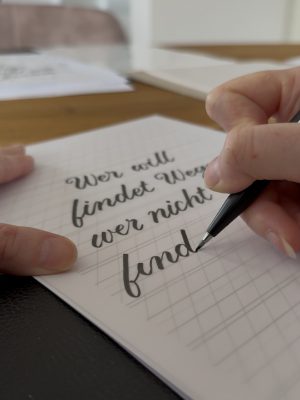 Wer will
findet Weg
wer nicht
find